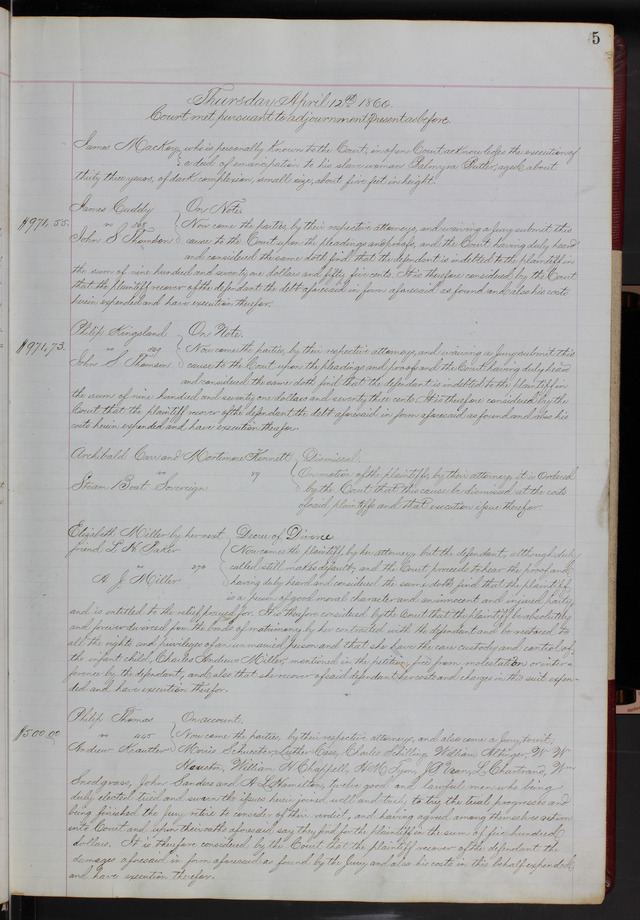 5
Thursday April 12th 1866.
Court met pursuant to adjournment present as before.
James Mackay, who is personally known to the Court, in open Court acknowledges the execution of
a deed of emancipation to his slave woman Palmyra Butler, aged about
thirty three years, of dark complexion, small size, about five feet in height.
James Cuddy On Note.
$971,55. vs Now come the parties, by their respective attorneys, and waiving a Jury submit this
John S Thomson cause to the Court upon the pleadings and proofs, and the Court having duly heard
and considered the same doth find that the defendant is indebted to the plaintiff in
the sum of nine hundred and seventy one dollars and fifty five cents. It is therefore considered by the Court
that the plaintiff recover of the defendant the debt aforesaid in form aforesaid as found and also his costs
herein expended and have execution therefor.
Philip Kingsland On Note.
$971,73. vs Now come the parties, by their respective attorneys, and waiving a Jury submit this
John S Thomson cause to the Court upon the pleadings and proof and the Court having duly heard
and considered the same doth find that the defendant is indebted to the plaintiff in
the sum of nine hundred and seventy one dollars and seventy three cents. It is therefore considered by the
Court that the plaintiff recover of the defendant the debt aforesaid in form aforesaid as found and also his
costs herein expended and have execution therefor.
Archibald Carr and Mortimore Kennett Dismissed.
vs 79 On motion of the plaintiffs, by their attorney it is Ordered
Steam Boat Sovereign by the Court that this cause be dismissed at the costs
of said plaintiffs and that execution issue therefor.
Elizabeth Miller by her next Decree of Divorce
friend L H Baker Now comes the plaintiff by her attorney but the defendant, although duly
vs 270 called still makes default, and the Court proceeds to hear the proof and
A J Miller having duly heard and considered the same doth find that the plaintiff
is a person of good moral character and an innocent and injured party
and is entitled to the relief prayed for. It is therefore considered by the Court that the plaintiff be absolutely
and forever divorced from the bonds of matrimony by her contracted with the defendant and be restored to
all the rights and privileges of an unmarried person and that she have the care custody and control of
the infant child, Charles Andrew Miller, mentioned in the petition, free from molestation or inter-
ference by the defendant, and also that she recover of said defendant her costs and charges in this suit expen-
ded and have execution therefor.
Philip Thomas On account.
$500.00 vs 445 Now come the parties, by their respective attorneys, and also came a Jury to wit,
Andrew Krautter Moris Schuester, Luther Case, Charles Schilling, William Attinger, W W
William H Chappell, H M Tyon, L Chartrand, Wm
Snodgrass, John Sanders and A L Hamilton, twelve good and lawful men who being
duly elected tried and sworn the issues herein joined well and truly to try the trial progresses and
being finished the Jury retire to consider of their verdict, and having agreed among themselves return
into Court and upon their oaths aforesaid say they find for the plaintiff in the sum of five hundred
dollars. It is therefore considered by the Court that the plaintiff recover of the defendant the
damages aforesaid in form aforesaid as found by the Jury and also his costs in this behalf expended
and have execution therefor.